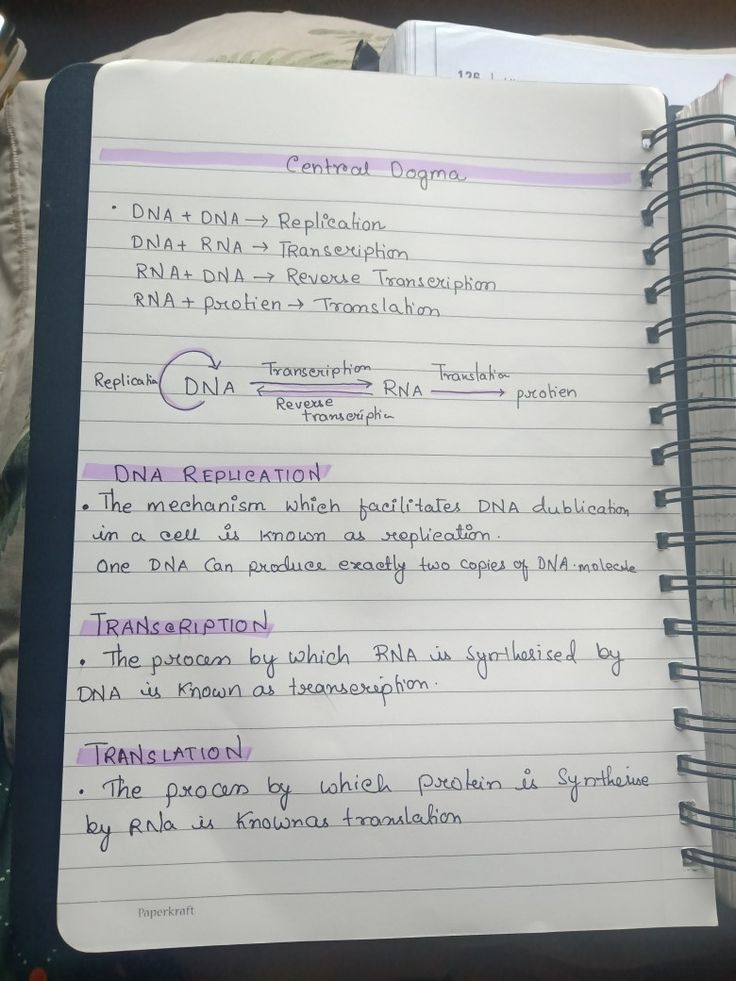 126
Central Dogma
• DNA + DNA → Replication
DNA + RNA → Transcription
RNA + DNA → Reverse Transcription
RNA + protien → Translation
Replicatin DNA Transcription RNA Translation protien
Reverse
transcriptin
DNA REPLICATION
• The mechanism which facilitates DNA dublication
in a cell is known as replication.
One DNA Can produce exactly two copies of DNA molecule
TRANSCRIPTION
• The process by which RNA is Synthesised by
DNA is Known as transcription.
TRANSLATION
• The process by which protein is Synthesise
by RNa is Known as translation
Paperkraft